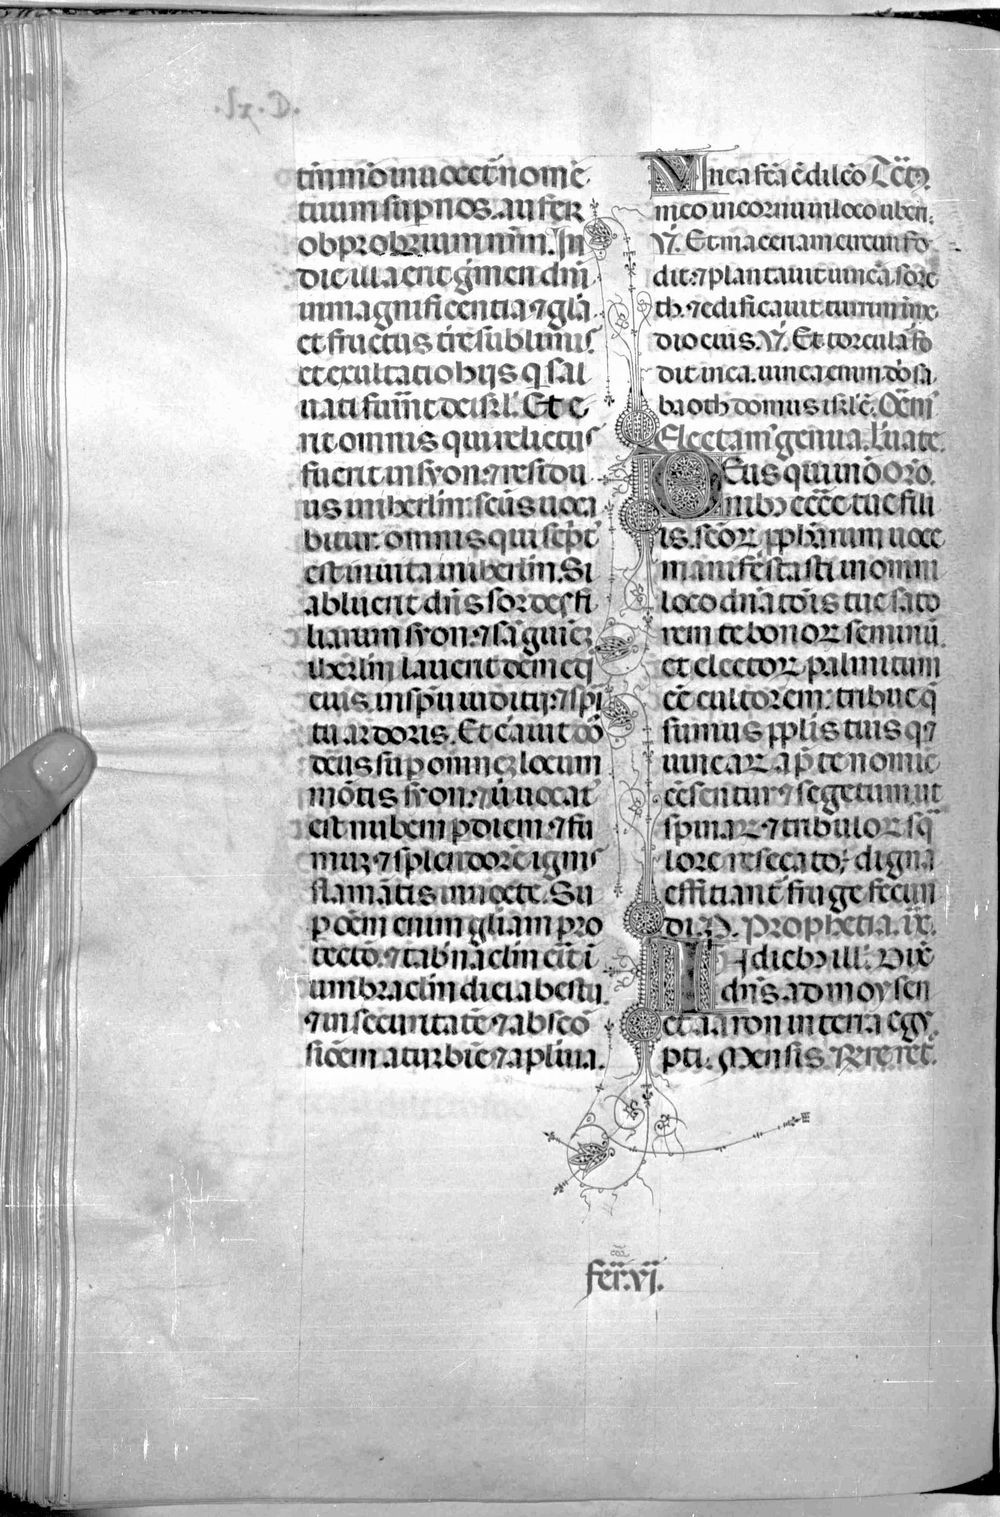 tum modo inuocet nomē
tuum sup nos. aufer
obprobrium nrm. In
die illa erit gmen dni
in magnificentia ⁊ glia.
et fructus tre sublimis
et exultatio hijs q sal
uati fuint de isrl. Et e
rit omnis qui relictus
fuerit in syon. ⁊ residu
us in ierlm. scus uoca
bitur. omnis qui scpt'
est in uita in ierlm. Si
abluerit dns sordes fi
liarum syon. ⁊ sāguinez
ierlm lauerit de medi
eius. in spu iudicij. ⁊ spi
tu ardoris. Et cauit do
deus sup omnez locum
montis syon. ⁊ ubi uocat'
est nubem p diem. ⁊ fu
muz ⁊ splendorē ignis
flamātis in nocte. Su
p oem enim gliam pro
tectō. ⁊ tabnaclm erit i
umbraclm diei ab estu.
⁊ in securitatē ⁊ absco
sioem a turbie ⁊ a pluia.
Vinea fca ē dilcō Tct9.
meo in cornu in loco uberi.
V. Et maceriam circum fo
dit. ⁊ plantauit uineā sore
th. ⁊ edificauit turrim ime
dio eius. V. Et torcular fo
dit in ea. uinea enim dō sa
baoth domus isrl ē. Oem'
Flectam' genua. Leuate.
Deus qui in ō oro
nibꝫ eccē tue fili
is. scōꝝ pphārum uoce
manifestasti in omni
loco dnatōis tue sato
rem te bonoꝝ seminū.
et electoꝝ palmitum
eē cultorem. tribue qs
sumus pplis tuis q ⁊
uineaꝝ ap te nomie
cēsentur ⁊ segetum. ut
spinaꝝ ⁊ tribuloꝝ sq
lore resecato. digna
efficiant' fruge fecun
di. P. Prophetia. ix.
In diebꝫ ill. Dix
dns. ad moysen
et aaron in terra egy
pti. Mensis
fer. vi.